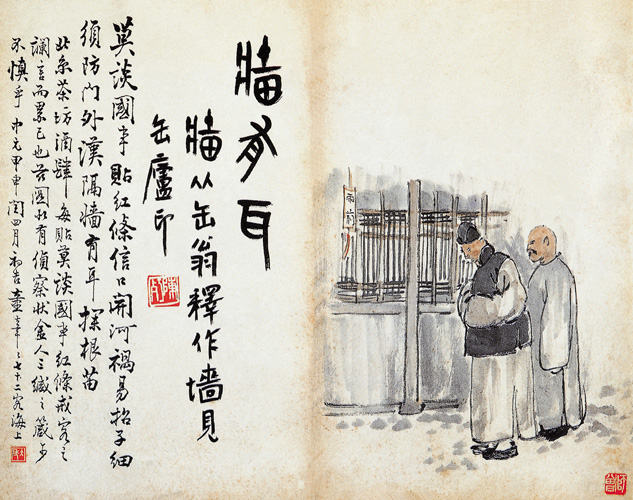 牆有耳
牆从缶翁釋作墻見
缶廬印
莫談國事貼紅條信口開河禍易招子細
須防門外漢隔墻有耳探根苗
此系茶坊酒肆每貼莫談國事紅條戒客之
讕言而累己也圖有偵察狀金人三緘之箴
不慎乎 甲申閏四月初吉童七十二客海上
雨前
師曾